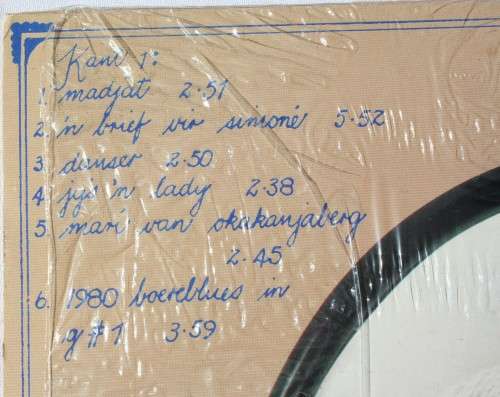 Kant 1:
1. madjat 2.51
2. 'n brief vir simoné 5.52
3. danser 2.50
4. jy's 'n lady 2.38
5. mari van okakanjaberg
2.45
6. 1980 boereblues in
g#7 3.59